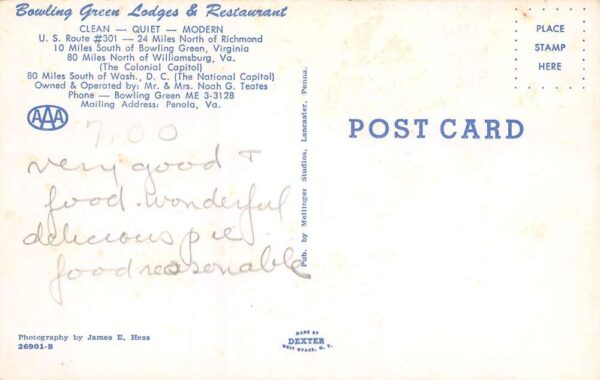 Bowling Green Lodges & Restaurant
CLEAN — QUIET — MODERN
U. S. Route #301 — 24 Miles North of Richmond
10 Miles South of Bowling Green, Virginia
80 Miles North of Williamsburg, Va.
(The Colonial Capitol)
80 Miles South of Wash., D. C. (The National Capitol)
Owned & Operated by: Mr. & Mrs. Noah G. Teates
Phone — Bowling Green ME 3-3128
Mailing Address: Penola, Va.
AAA
7.00
very good +
food. wonderful
delicious pie.
food reasonable
Photography by James E. Hess
26901-B
Pub. by Mellinger Studios, Lancaster, Penna.
MADE BY
DEXTER
WEST NYACK, N. Y.
POST CARD
PLACE
STAMP
HERE